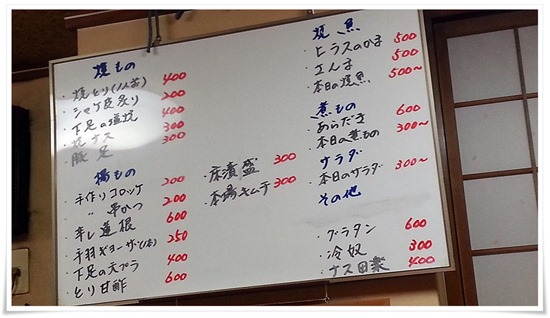 焼もの
・焼とり(1人前) 400
・シャケ皮炙り 200
・下足の塩焼 400
・焼ナス 300
・豚足 300
揚もの
手作りコロッケ 200
〃 串かつ 200
辛し蓮根 600
・手羽ギョーザ(1本) 250
・下足の天プラ 400
・とり甘酢 600
・床漬盛 300
・本場キムチ 300
焼魚
・ヒラスのかま 500
・さんま 500
・本日の焼魚 500~
煮もの
・あらだき 600
・本日の煮もの 300~
サラダ
・本日のサラダ 300~
その他
・グラタン 600
・冷奴 300
・ナス田楽 400